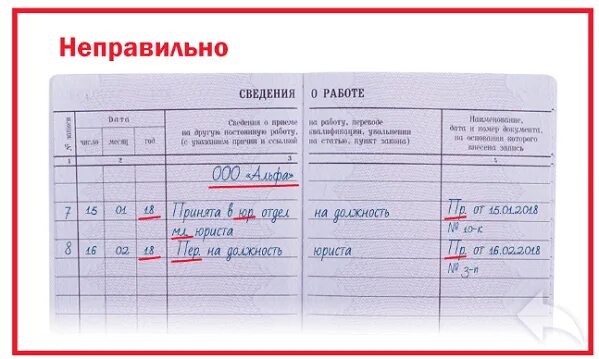 Неправильно
СВЕДЕНИЯ О РАБОТЕ
№ записи
Дата
число месяц год
Сведения о приеме на работу, переводе
на другую постоянную работу, квалификации, увольнении
(с указанием причин и ссылкой на статью, пункт закона)
Наименование,
дата и номер документа,
на основании которого
внесена запись
1 2 3 4
ООО «Альфа»
7 15 01 18 Принята в юр. отдел на должность Пр. от 15.01.2018
мл. юриста № 10-к
8 16 02 18 Пер. на должность юриста Пр. от 16.02.2018
№ 3-п